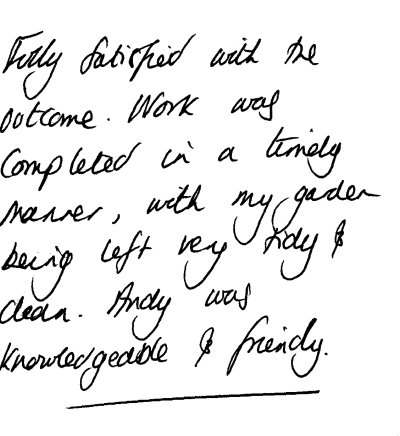 Fully satisfied with the
outcome. Work was
completed in a timely
manner, with my garden
being left very tidy &
clean. Andy was
knowledgeable & friendly.